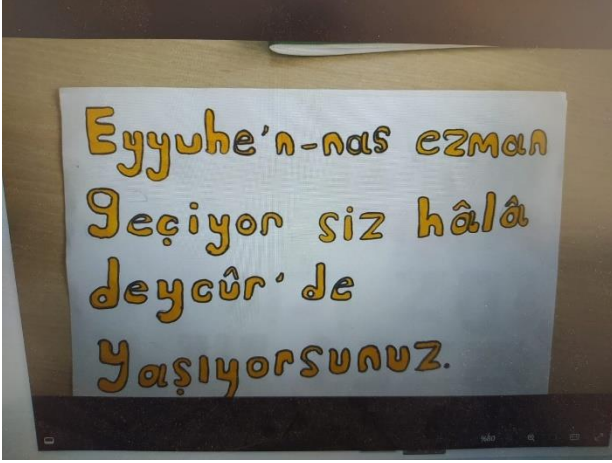 Eyyuhe'n-nas ezman
geçiyor siz hâlâ
deycûr'de
yaşıyorsunuz.
%80